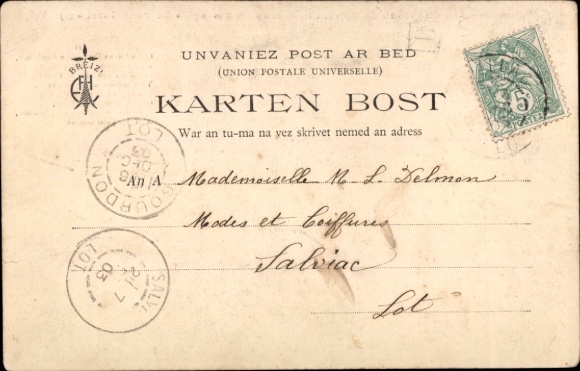 BREIZ
UNVANIEZ POST AR BED
(UNION POSTALE UNIVERSELLE)
KARTEN BOST
War an tu-ma na vez skrivet nemed an adress
An A
Mademoiselle M. L. Delmon
Modes et Coiffures
Salviac
Lot
GOURDON
LOT
DEC
03
SALVI
LOT
03
5
POSTES